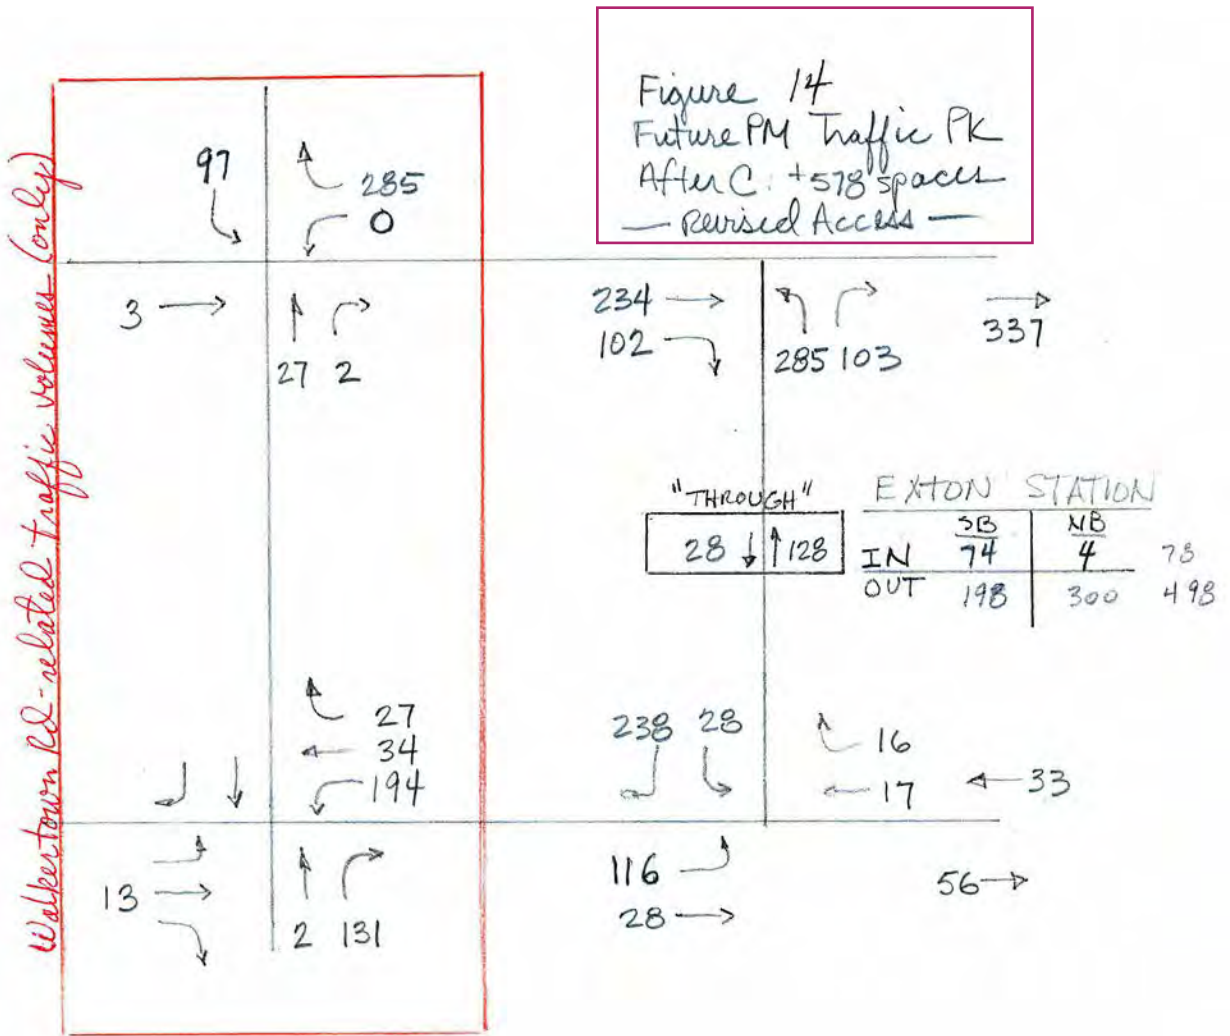 Figure 14
Future PM Traffic PK
After C: +578 spaces
— Revised Access —
Walkertown Rd-related traffic volumes (only)
97
285
0
3
27 2
234
102
285 103
337
"THROUGH"
28 128
EXTON STATION
SB NB
IN 74 4 78
OUT 198 300 498
27
34
194
238 28
16
17
33
13
2 131
116
28
56